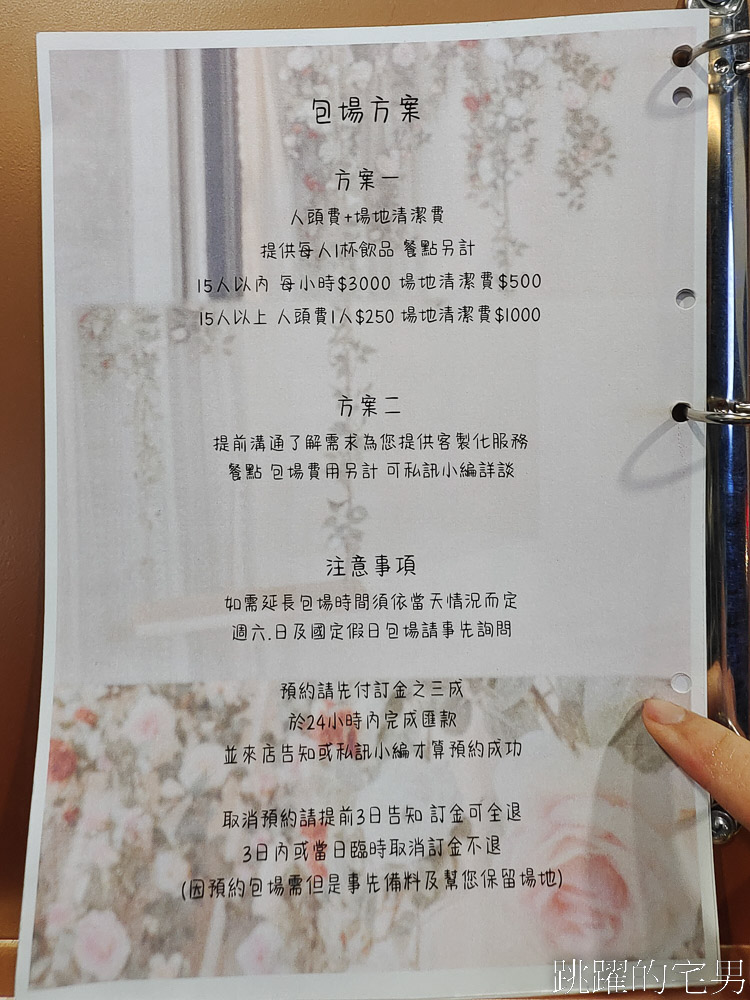 包場方案
方案一
人頭費+場地清潔費
提供每人1杯飲品 餐點另計
15人以內 每小時$3000 場地清潔費$500
15人以上 人頭費1人$250 場地清潔費$1000
方案二
提前溝通了解需求為您提供客製化服務
餐點 包場費用另計 可私訊小編詳談
注意事項
如需延長包場時間須依當天情況而定
週六.日及國定假日包場請事先詢問
預約請先付訂金之三成
於24小時內完成匯款
並來店告知或私訊小編才算預約成功
取消預約請提前3日告知 訂金可全退
3日內或當日臨時取消訂金不退
(因預約包場需但是事先備料及幫您保留場地)
跳躍的宅男